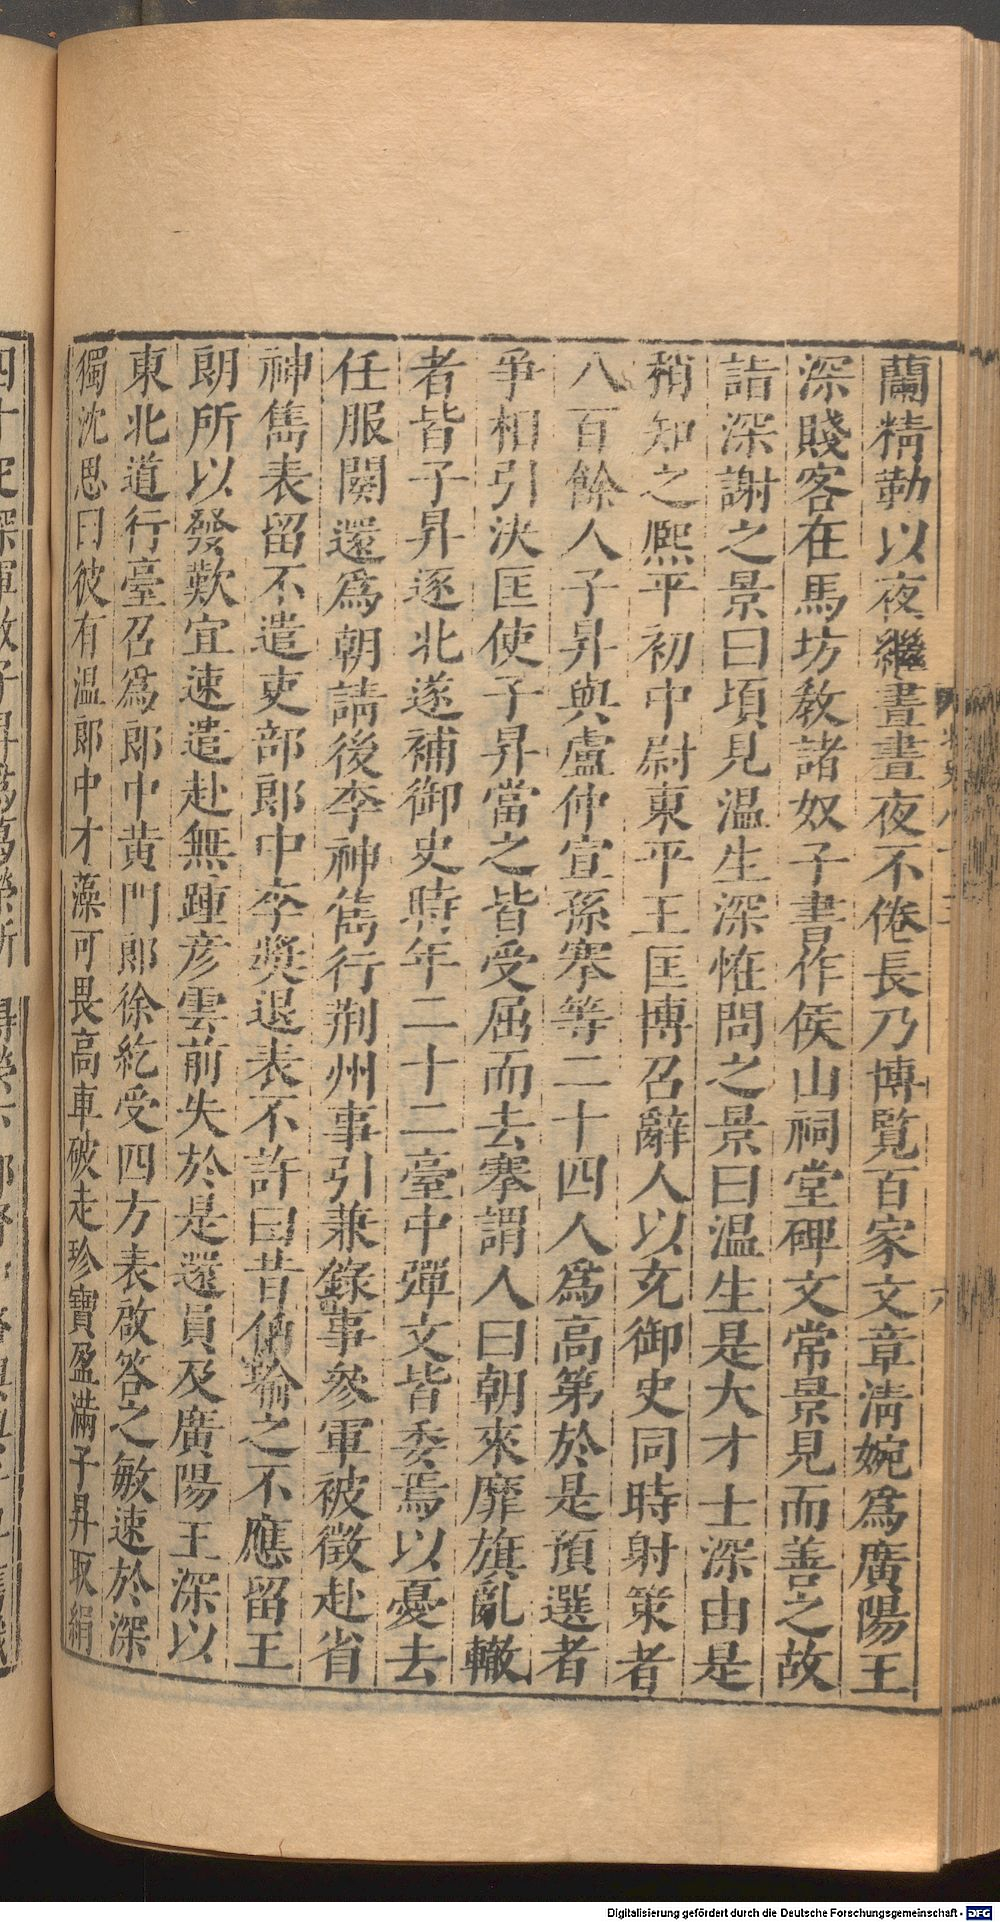 蘭精勤以夜繼晝晝夜不倦長乃博覽百家文章淸婉爲廣陽王
深賤客在馬坊教諸奴子書作侯山祠堂碑文常景見而善之故
詣深謝之景曰頃見温生深怪問之景曰温生是大才士深由是
稍知之熙平初中尉東平王匡博召辭人以充御史同時射策者
八百餘人子昇與盧仲宣孫搴等二十四人爲高第於是預選者
爭相引決匡使子昇當之皆受屈而去搴謂人曰朝來靡旗亂轍
者皆子昇逐北遂補御史時年二十二臺中彈文皆委焉以憂去
任服闋還爲朝請後李神儁行荆州事引兼錄事參軍被徵赴省
神儁表留不遣吏部郎中李奬退表不許曰昔伯瑜之不應留王
朗所以發歎宜速遣赴無踵彦雲前失於是還員及廣陽王深以
東北道行臺召爲郎中黄門郎徐紇受四方表啟答之敏速於深
獨沈思曰彼有温郎中才藻可畏高車破走珍寶盈滿子昇取絹
Digitalisierung gefördert durch die Deutsche Forschungsgemeinschaft - DFG